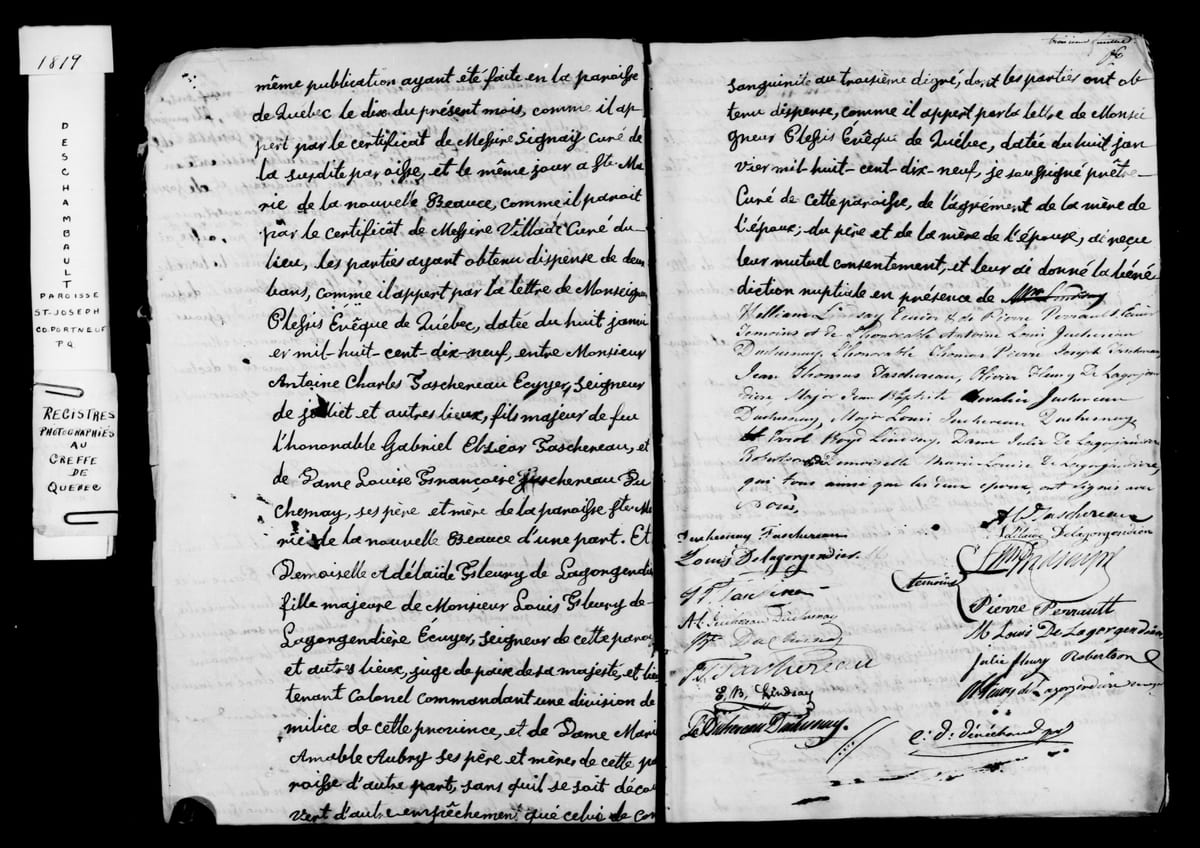 1819
DESCHAMBAULT
PAROISSE
ST-JOSEPH
CO.PORTNEUF
PQ
REGISTRES
PHOTOGRAPHIÉS
AU
GREFFE
DE
QUEBEC
même publication ayant été faite en la paroisse
de Québec le dix du présent mois, comme il ap
pert par le certificat de Messire Signay Curé de
la susdite paroisse, et le même jour a Ste Ma
rie de la nouvelle Beauce, comme il paroit
par le certificat de Messire Villade Curé du
lieu, les parties ayant obtenu dispense de deux
bans, comme il appert par la lettre de Monseign
Plessis Evêque de Québec, datée du huit janvi
er mil-huit-cent-dix-neuf, entre Monsieur
Antoine Charles Taschereau Ecuyer, Seigneur
de jolliet et autres lieux, fils majeur de feu
l'honorable Gabriel Elzéar Taschereau, et
de Dame Louise Françoise Juschereau Du
chesnay, ses père et mère de la paroisse Ste Ma
rie de la nouvelle Beauce d'une part. Et
Demoiselle Adélaide Fleury de Lagorgendiè
fille majeure de Monsieur Louis Fleury de
Lagorgendière Écuyer, Seigneur de cette paroi
et autres lieux, juge de paix de sa majesté, et lieu
tenant Colonel commandant une division de
milice de cette province, et de Dame Mari
Amable Aubry ses père et mères de cette pa
roisse d'autre part, sans quil se soit décou
vert d'autre empêchement que celui de con
troisieme feuillet
sanguinité au troisième dégré, dont les parties ont ob
tenu dispense, comme il appert par la lettre de Monsei
gneur Plessis Evêque de Québec, datée du huit jan
vier mil-huit-cent-dix-neuf, je soussigné prêtre
Curé de cette paroisse, de l'agrément de la mère de
l'époux, du père et de la mère de l'épouse, ai reçu
leur mutuel consentement, et leur ai donné la béné
diction nuptiale en présence de
William Lindsay Ecuier & de Pierre Perrault Ecuier
Temoins et de L'honorable Antoine Louis Juchereau
Duchesnay, L'honorable Thomas Pierre Joseph Taschereau
Jean Thomas Taschereau, Olivier Fleury De Lagorgen
dière, Major Jean Baptiste Juchereau
Duchesnay, Major Louis Juchereau Duchesnay
Errol Boyd Lindsay, Dame Julie De Lagorgendière
Robertson, Demoiselle Marie Louise De Lagorgendière,
qui tous ainsi que les deux epoux, ont signés avec
Nous,
A C Taschereau
Duchesnay Taschereau
Adelaide Delagorgendière
Louis Delagorgendière
temoins
Pierre Perrault
A L Juchereau Duchesnay
M Louise De Lagorgendière
Duchesnay
Taschereau
Julie fleury Robertson
E, B, Lindsay
Juchereau Duchesnay.